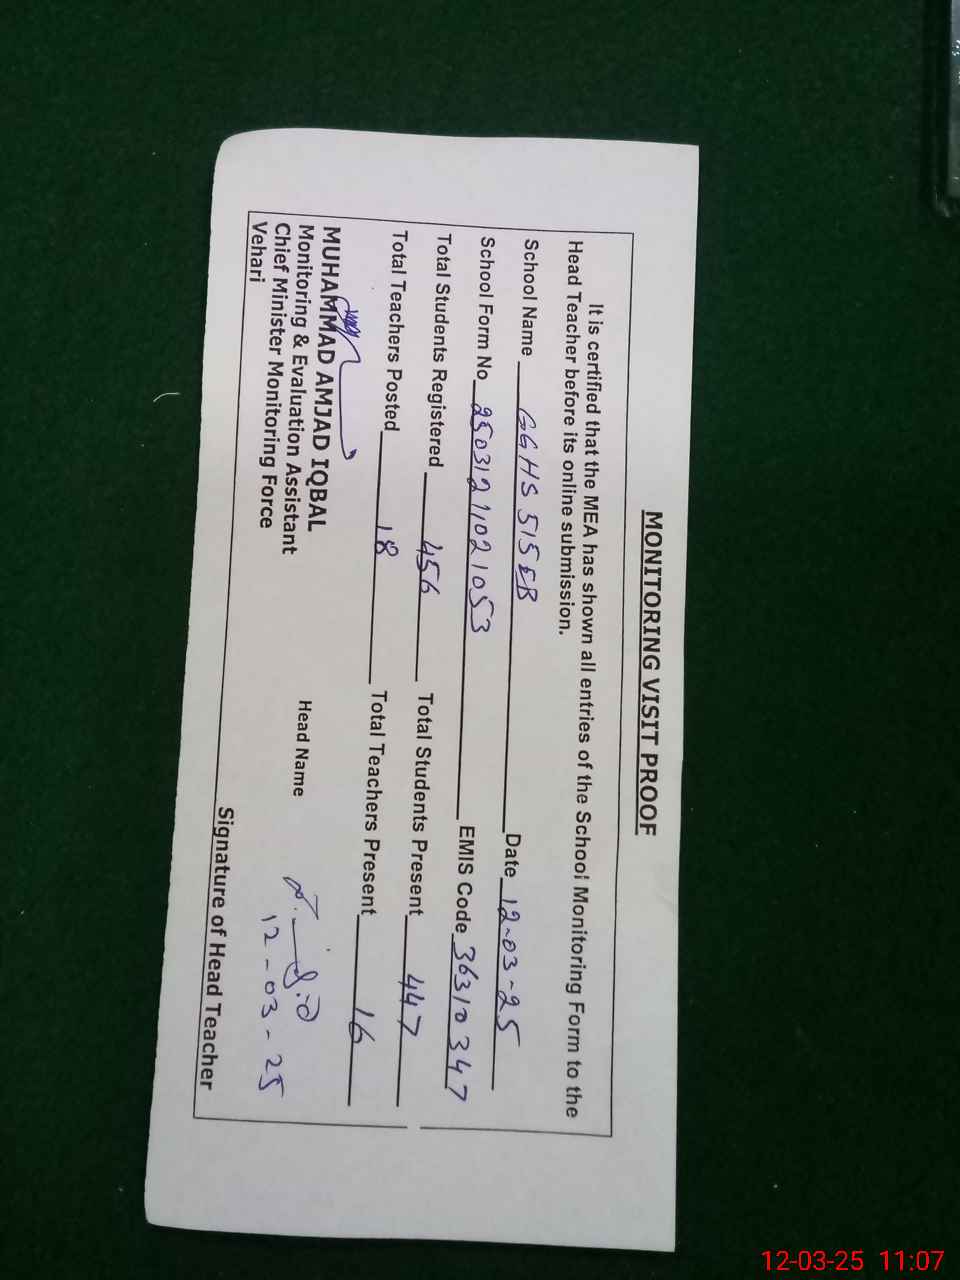 MONITORING VISIT PROOF
It is certified that the MEA has shown all entries of the School Monitoring Form to the
Head Teacher before its online submission.
School Name GGHS 515 EB Date 12-03-25
School Form No 250312 1102 1053 EMIS Code 36310347
Total Students Registered 456 Total Students Present 447
Total Teachers Posted 18 Total Teachers Present 16
MUHAMMAD AMJAD IQBAL
Monitoring & Evaluation Assistant
Chief Minister Monitoring Force
Vehari
Head Name
12-03-25
Signature of Head Teacher
12-03-25 11:07